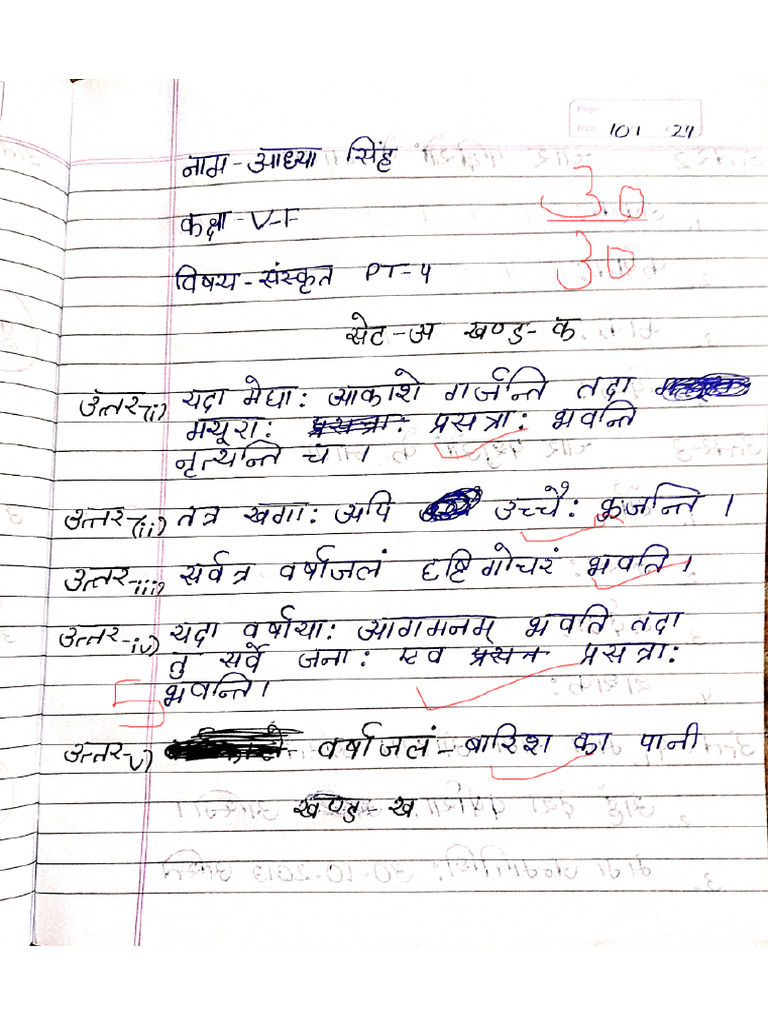 101 24
नाम-आध्या सिंह
3.0
कक्षा-V-F
30
विषय-संस्कृत PT-4
सेट-अ खण्ड-क
उत्तर-(i) यदा मेघा: आकाशे गर्जन्ति तदा
मयूरा: प्रसत्रा: प्रसत्रा: भवन्ति
नृत्यन्ति च ।
उत्तर-(ii) तत्र खगा: अपि उच्चै: कूजन्ति ।
उत्तर-iii) सर्वत्र वर्षाजलं दृष्टिगोचरं भवति ।
उत्तर-iv) यदा वर्षाया: आगमनम् भवति तदा
तु सर्वे जना: एव प्रसत्र प्रसत्रा:
5 भवन्ति।
उत्तर-v) वर्षाजलं-बारिश का पानी
खण्ड-ख